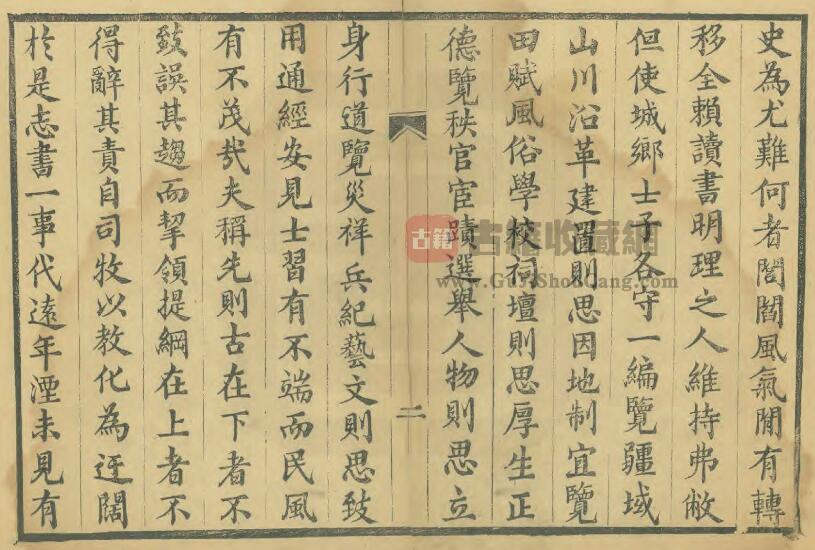 史為尤難何者閭閻風氣間有轉
移全賴讀書明理之人維持弗敝
但使城鄉士子各守一編覽疆域
山川沿革建置則思因地制宜覽
田賦風俗學校祠壇則思厚生正
德覽秩官宦蹟選舉人物則思立
二
身行道覽災祥兵紀藝文則思致
用通經安見士習有不端而民風
有不茂哉夫稱先則古在下者不
致誤其趨而挈領提綱在上者不
得辭其責自司牧以教化為迂闊
於是志書一事代遠年湮未見有
古籍 古籍收藏網
www.GuJiShouCang.com